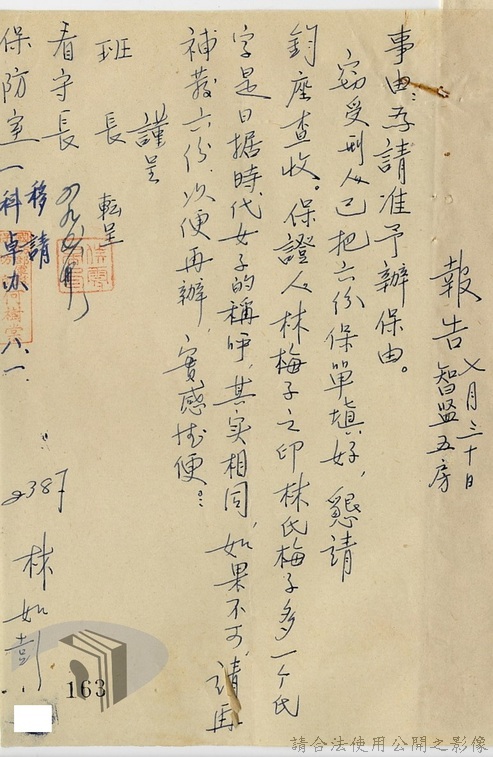 報告 七月三十日
智监五房
事由：為請准予辦保由。
竊受刑人已把六份保單填好，懇請
鈞座查收。保證人林梅子之印林氏梅子多一个氏
字是日据時代女子的稱呼，其实相同，如果不可，請再
補發六份，以便再辦，實感德便。
謹呈
班長 転呈
看守長
保防室一科卓办
移請
八.一.
2387 林如彭
163
請合法使用公開之影像